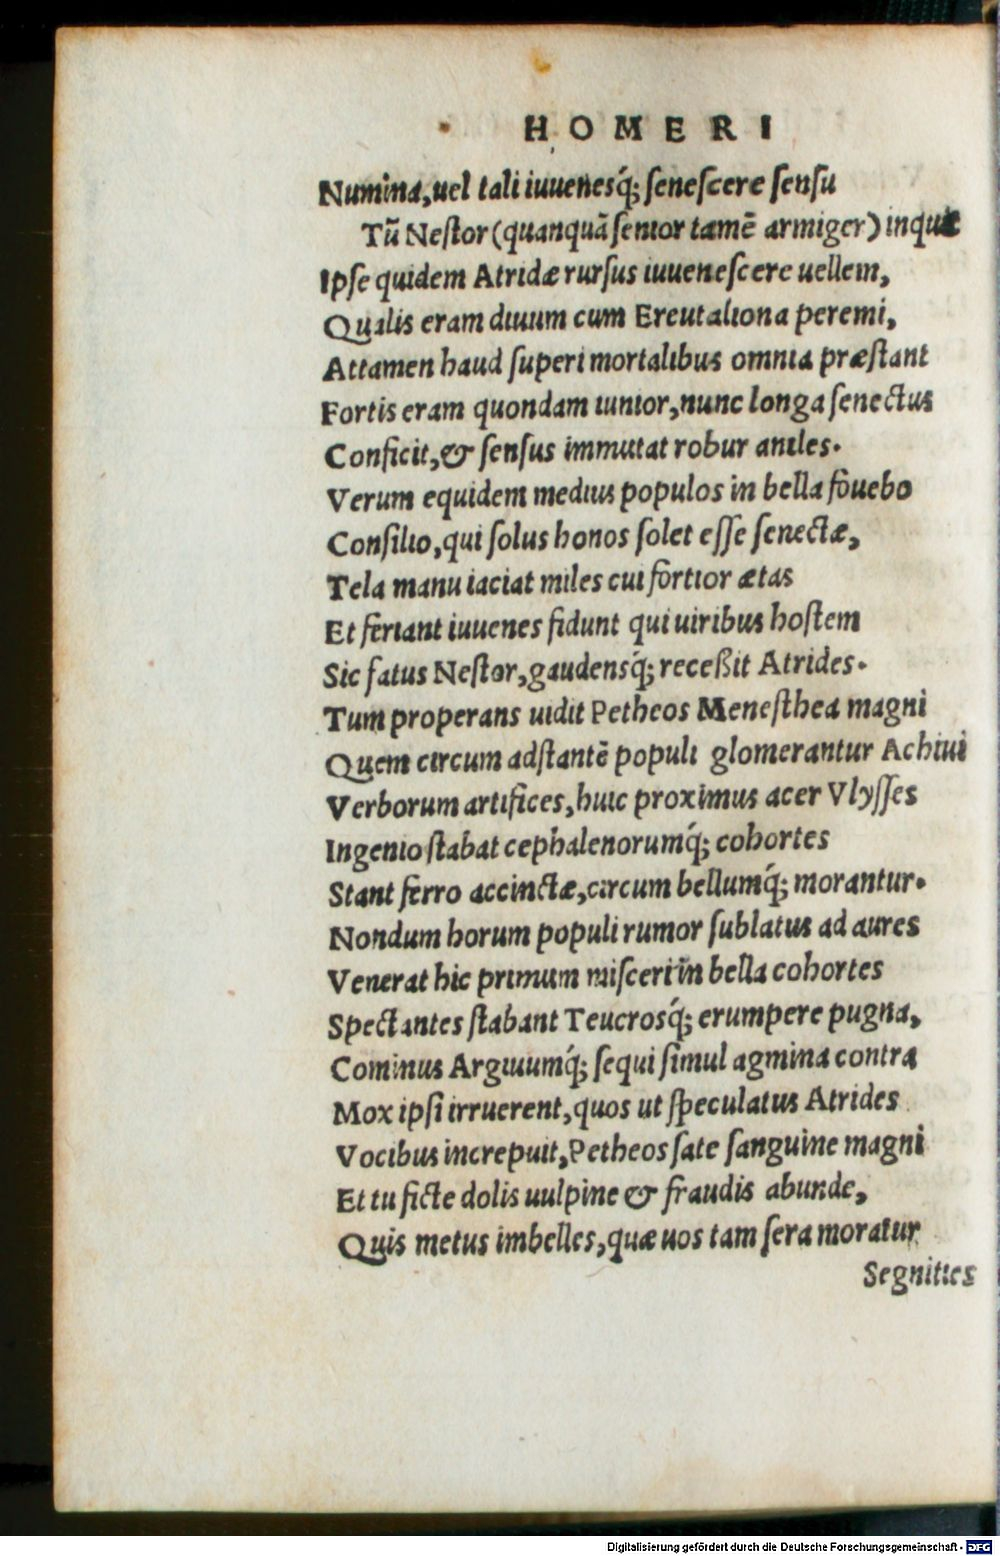 HOMERI
Numina, uel tali iuuenesq́; senescere sensu
Tũ Nestor (quanquã senior tamẽ armiger) inquit
Ipse quidem Atridæ rursus iuuenescere uellem,
Qualis eram diuum cum Ereutaliona peremi,
Attamen haud superi mortalibus omnia præstant
Fortis eram quondam iunior, nunc longa senectus
Conficit, & sensus immutat robur aniles.
Verum equidem medius populos in bella fouebo
Consilio, qui solus honos solet esse senectæ,
Tela manu iaciat miles cui fortior ætas
Et feriant iuuenes fidunt qui uiribus hostem
Sic fatus Nestor, gaudensq́; receßit Atrides.
Tum properans uidit Petheos Menesthea magni
Quem circum adstantẽ populi glomerantur Achiui
Verborum artifices, huic proximus acer Vlysses
Ingenio stabat cephalenorumq́; cohortes
Stant ferro accinctæ, circum bellumq́; morantur.
Nondum horum populi rumor sublatus ad aures
Venerat hic primum misceri in bella cohortes
Spectantes stabant Teucrosq́; erumpere pugna,
Cominus Argiuumq́; sequi simul agmina contra
Mox ipsi irruerent, quos ut speculatus Atrides
Vocibus increpuit, Petheos sate sanguine magni
Et tu ficte dolis uulpine & fraudis abunde,
Quis metus imbelles, quæ uos tam sera moratur
Segnities
Digitalisierung gefördert durch die Deutsche Forschungsgemeinschaft - DFG